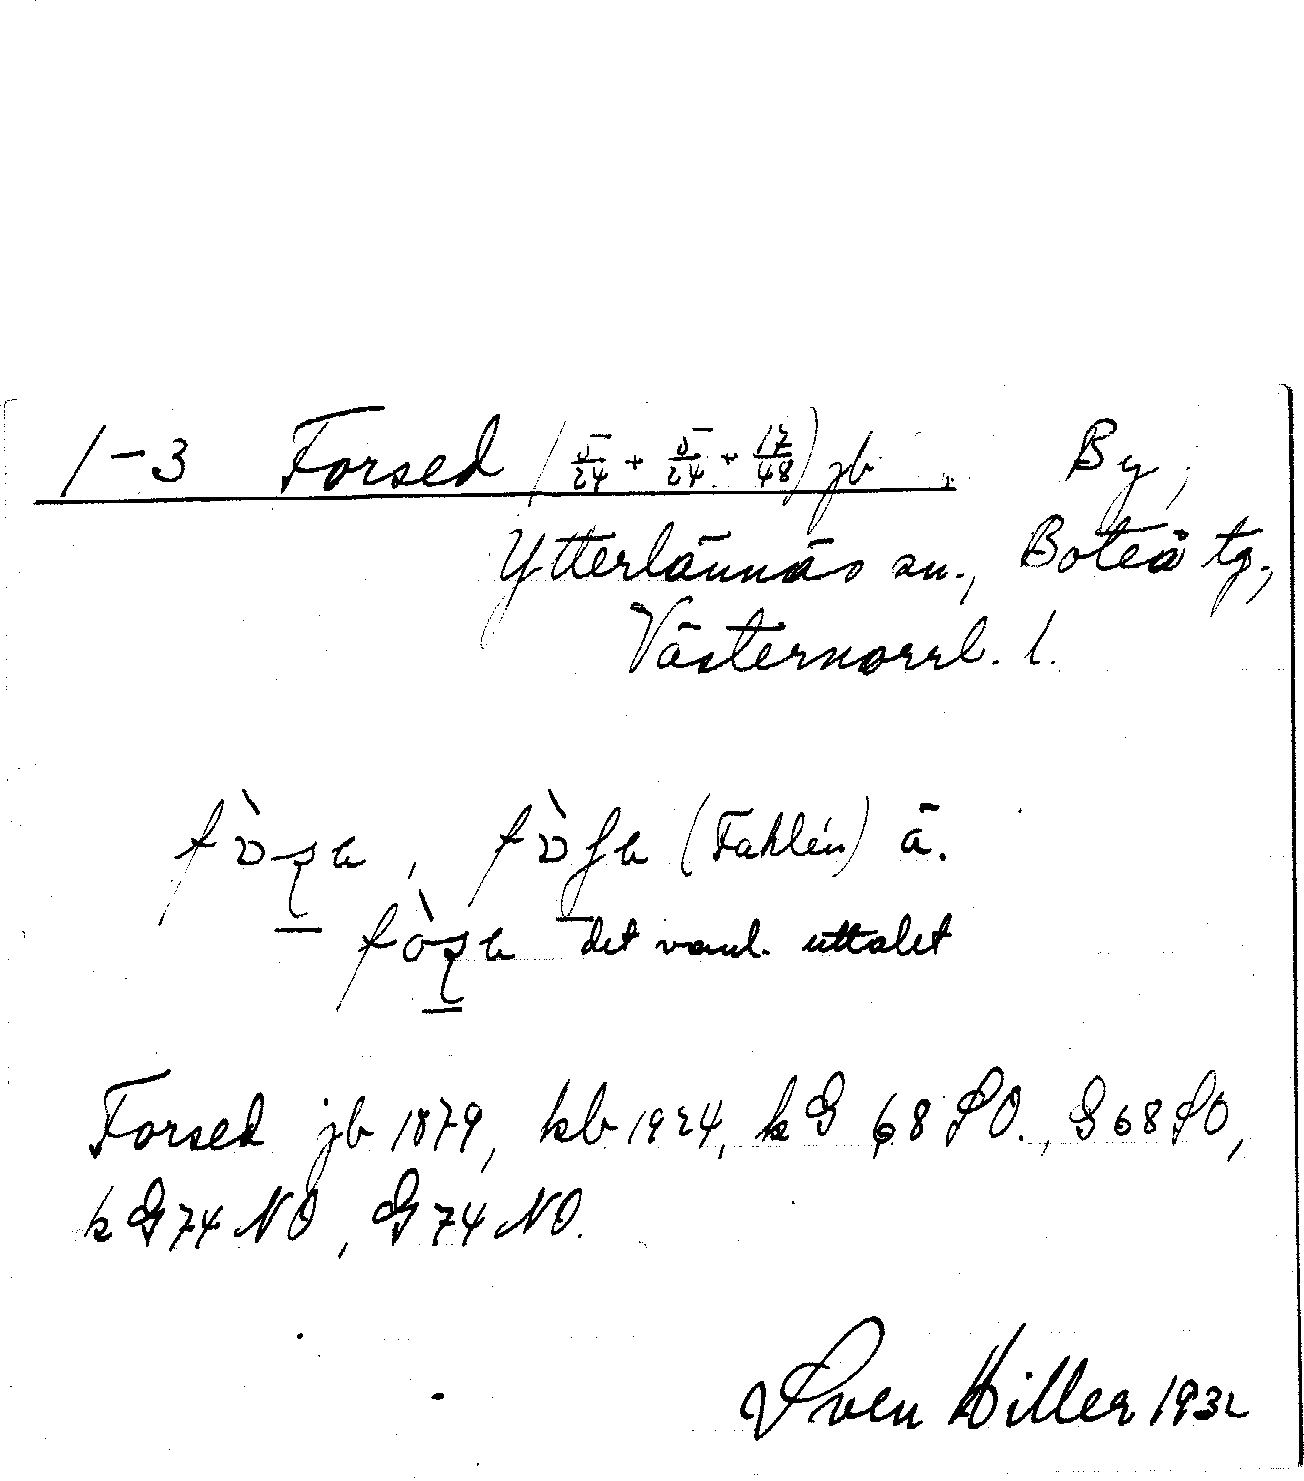 1-3 Forsed (5/24 + 5/24 + 17/48) jb. By,
Ytterlännäs sn., Boteå tg.,
Västernorrl. l.
(Fahlén) ä.
det vanl. uttalet
Forsed jb 1879, kb 1924, kG 68 SO., G 68 SO,
kG 74 NO, G 74 NO.
Sven Hiller 1932